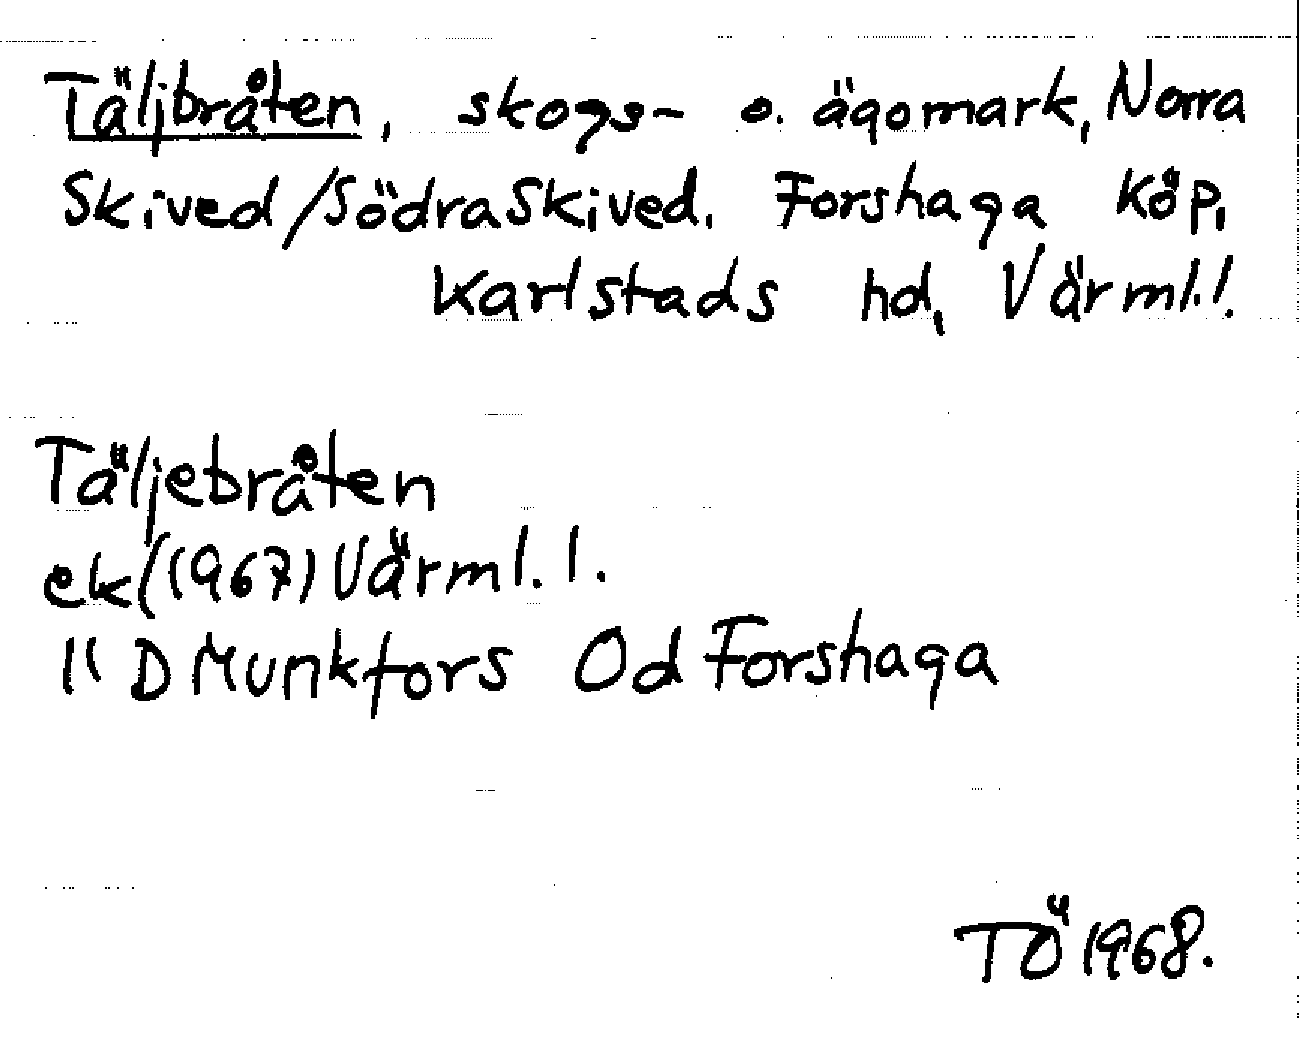 Täljbråten, skogs- o. ägomark, Norra
Skived/Södra Skived. Forshaga köp,
Karlstads hd, Värml.l.
Täljebråten
ek (1967) Värml.l.
11 D Munkfors Od Forshaga
TÖ 1968.